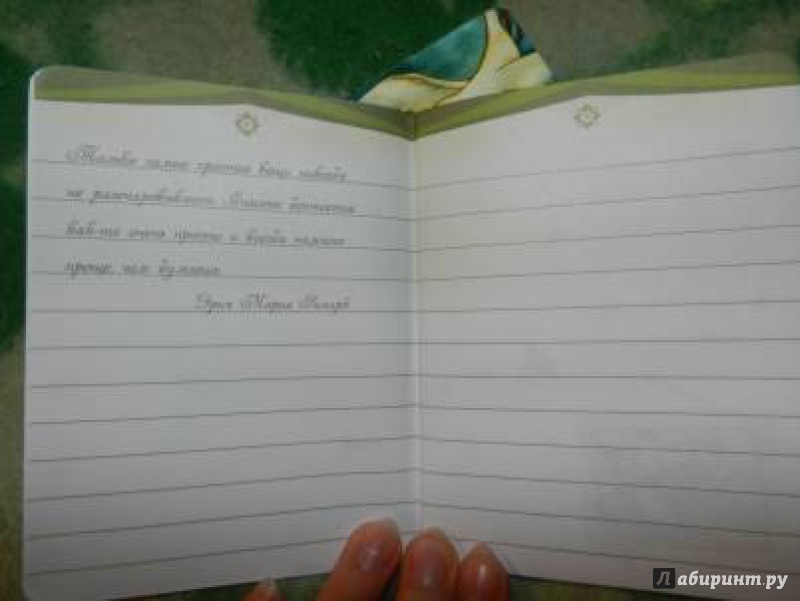 Только самые простые вещи никогда
не разочаровывают. Счастье достается
как-то очень просто и всегда гораздо
проще, чем думаешь.
Эрих Мария Ремарк
Лабиринт.ру